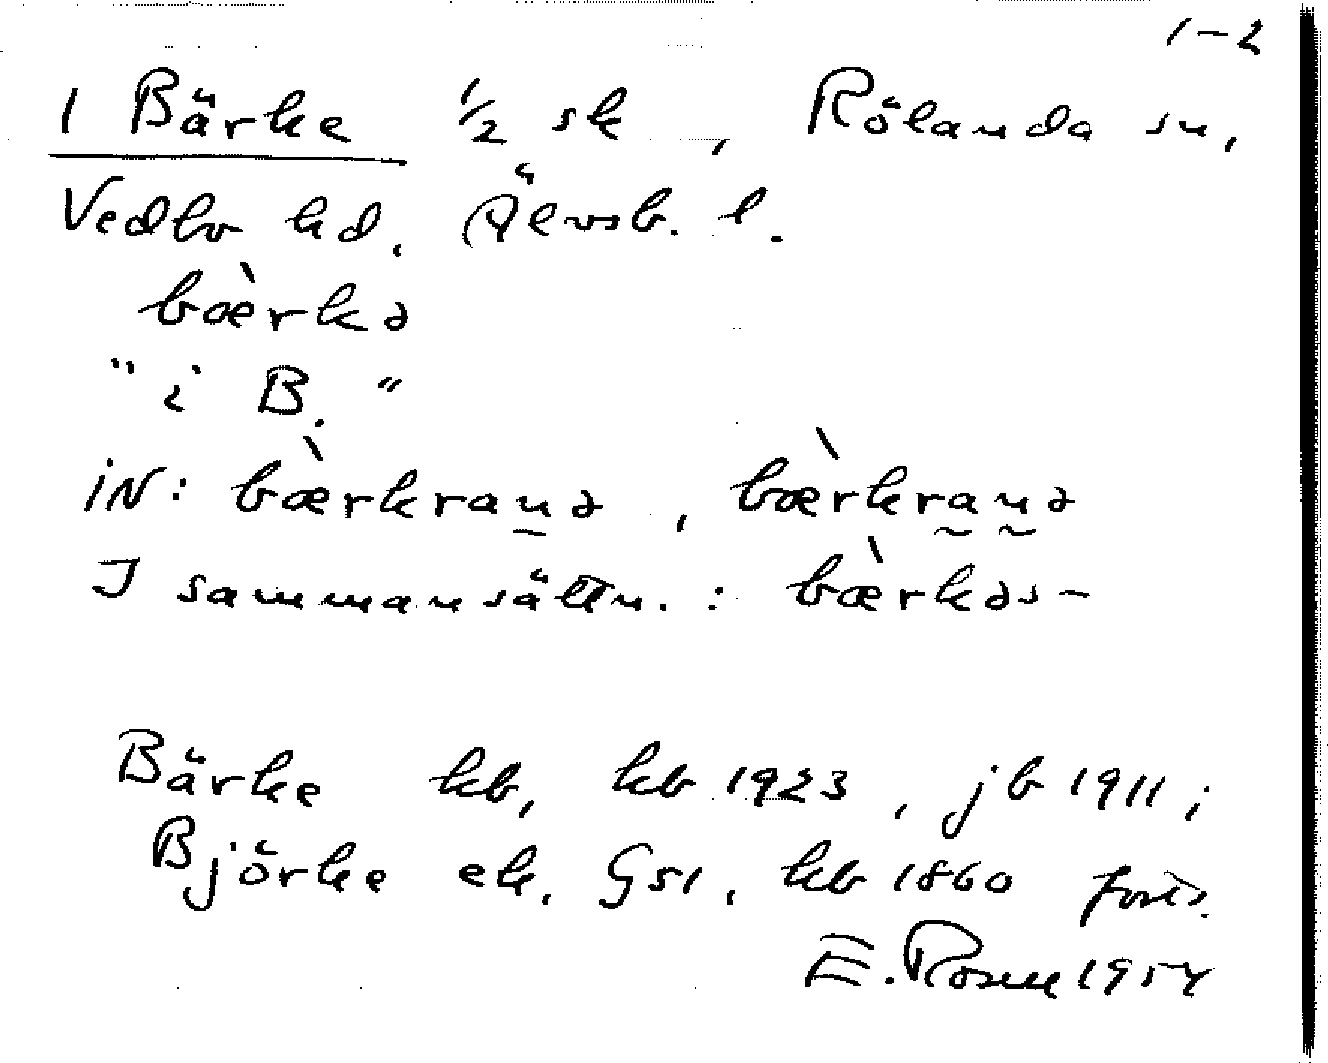 1-2
1 Bärke 1/2 sk , Rölanda sn,
Vedbo hd. Älvsb. l.
bæ̀rkə
" i B. "
iN: bæ̀rkran̰ə , bæ̀rkra̰n̰ə
I sammansättn. : bæ̀rkəs-
Bärke kb, kb 1923 , jb 1911 ;
Björke ek. Gs1. kb 1860 forts.
E. Rosell 1954